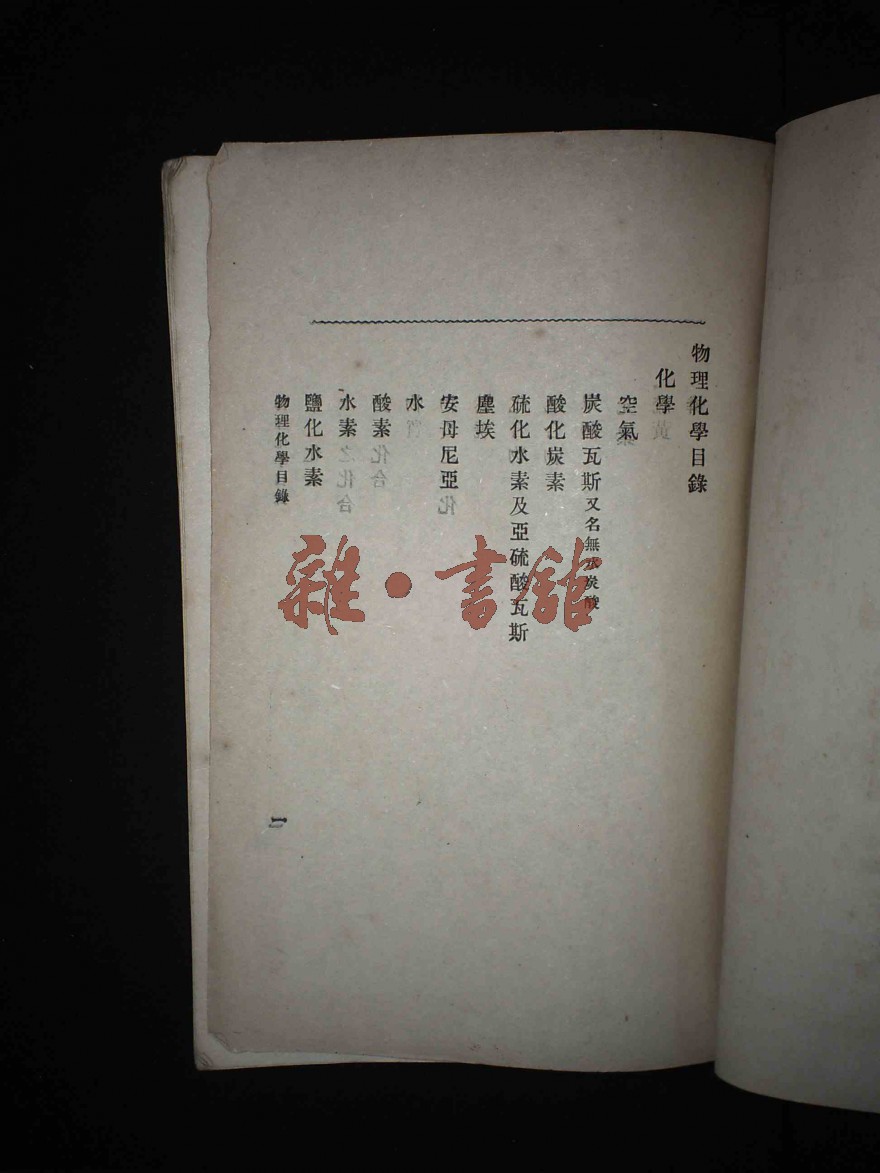 物理化學目錄
化學
空氣
炭酸瓦斯又名無水炭酸
酸化炭素
硫化水素及亞硫酸瓦斯
塵埃
安母尼亞
水
酸素
水素
鹽化水素
物理化學目錄
一
雜·書館